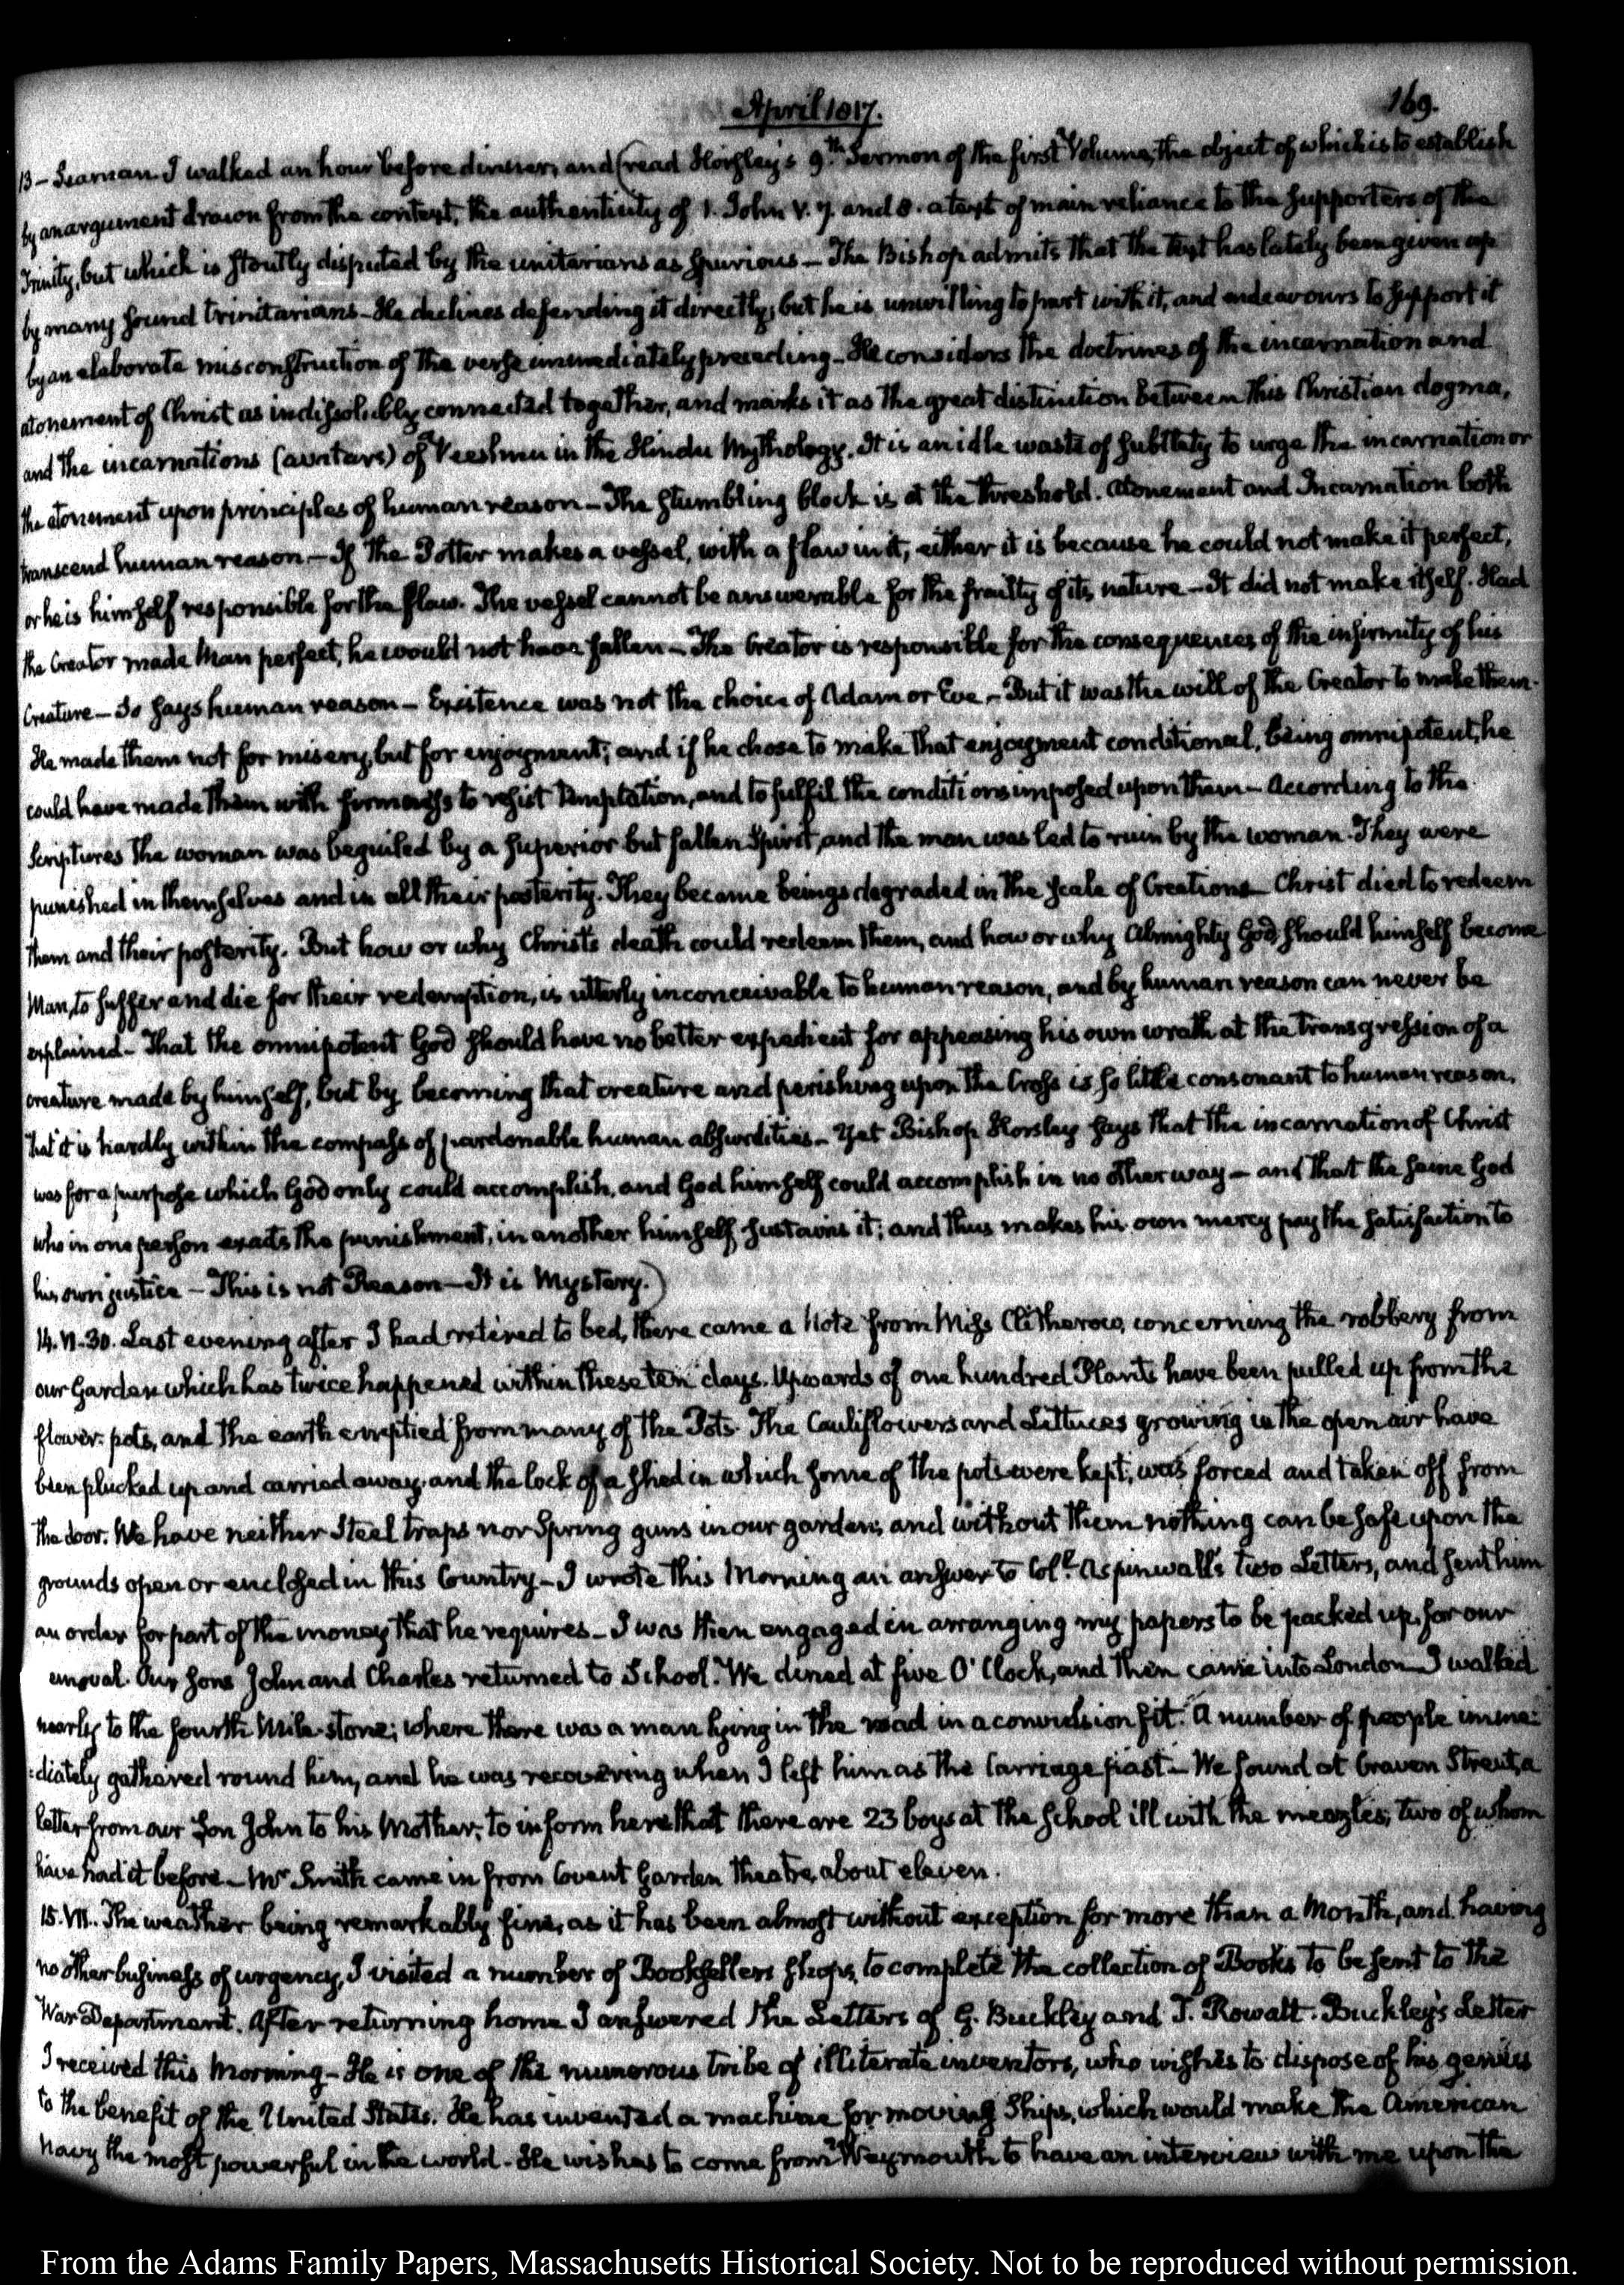 April 1817.
169.
13 - Seaman. I walked an hour before dinner, and (read Horsley's 9th. Sermon of the first Volume, the object of which is to establish
by an argument drawn from the context, the authenticity of 1. John V. 7. and 8. a text of main reliance to the supporters of the
Trinity, but which is stoutly disputed by the unitarians as spurious - The Bishop admits that the text has lately been given up
by many sound trinitarians - He declines defending it directly, but he is unwilling to part with it, and endeavours to support it
by an elaborate misconstruction of the verse immediately preceding - He considers the doctrines of the incarnation and
atonement of Christ as indissolubly connected together, and marks it as the great distinction between this Christian dogma,
and the incarnations (avatars) of Veeshnu in the Hindu Mythology. It is an idle waste of subtlety to urge the incarnation or
the atonement upon principles of human reason - The stumbling block is at the threshold. Atonement and Incarnation both
transcend human reason - If the Potter makes a vessel, with a flaw in it, either it is because he could not make it perfect,
or he is himself responsible for the flaw. The vessel cannot be answerable for the frailty of its nature - It did not make itself. Had
the Creator made Man perfect, he would not have fallen - The Creator is responsible for the consequences of the infirmity of his
Creature - So says human reason - Existence was not the choice of Adam or Eve - But it was the will of the Creator to make them.
He made them not for misery, but for enjoyment; and if he chose to make that enjoyment conditional, being omnipotent, he
could have made them with firmness to resist Temptation, and to fulfil the conditions imposed upon them - According to the
Scriptures the woman was beguiled by a superior but fallen Spirit, and the man was led to ruin by the woman. They were
punished in themselves and in all their posterity. They became beings degraded in the scale of Creation - Christ died to redeem
them and their posterity. But how or why Christ's death could redeem them, and how or why Almighty God should himself become
Man, to suffer and die for their redemption, is utterly inconceivable to human reason, and by human reason can never be
explained - That the omnipotent God should have no better expedient for appeasing his own wrath at the transgression of a
creature made by himself, but by becoming that creature and perishing upon the Cross is so little consonant to human reason,
that it is hardly within the compass of pardonable human absurdities - Yet Bishop Horsley says that the incarnation of Christ
was for a purpose which God only could accomplish, and God himself could accomplish in no other way - and that the same God
who in one person exacts the punishment, in another himself sustains it; and thus makes his own mercy pay the satisfaction to
his own justice - This is not Reason - It is Mystery.)
14. VI-30. Last evening after I had retired to bed, there came a Note from Miss Clitherow, concerning the robbery from
our Garden which has twice happened within these ten days. Upwards of one hundred Plants have been pulled up from the
flower-pots, and the earth emptied from many of the Pots. The Cauliflowers and Lettuces growing in the open air have
been plucked up and carried away, and the lock of a shed in which some of the pots were kept, was forced and taken off from
the door. We have neither Steel traps nor Spring guns in our garden; and without them nothing can be safe upon the
grounds open or enclosed in this Country - I wrote this Morning an answer to Coll. Aspinwall's two Letters, and sent him
an order for part of the money that he requires - I was then engaged in arranging my papers to be packed up, for our
emoval. Our Sons John and Charles returned to School. We dined at five O'Clock, and then came into London - I walked
nearly to the fourth Mile-stone; where there was a man lying in the road in a convulsion fit. A number of people imme:
:diately gathered round him, and he was recovering when I left him as the Carriage past - We found at Craven Street, a
letter from our Son John to his Mother, to inform her that there are 23 boys at the School ill with the meazles, two of whom
have had it before - Mr Smith came in from Covent Garden Theatre, about eleven.
15. VII. The weather being remarkably fine, as it has been almost without exception for more than a Month, and having
no other business of urgency, I visited a number of Booksellers shops, to complete the collection of Books to be sent to the
War Department. After returning home I answered the Letters of G. Buckley and J. Rowalt. Buckley's Letter
I received this Morning - He is one of the numerous tribe of illiterate inventors, who wishes to dispose of his genius
to the benefit of the United States. He has invented a machine for moving Ships, which would make the American
Navy the most powerful in the world - He wishes to come from Weymouth to have an interview with me upon the
From the Adams Family Papers, Massachusetts Historical Society. Not to be reproduced without permission.